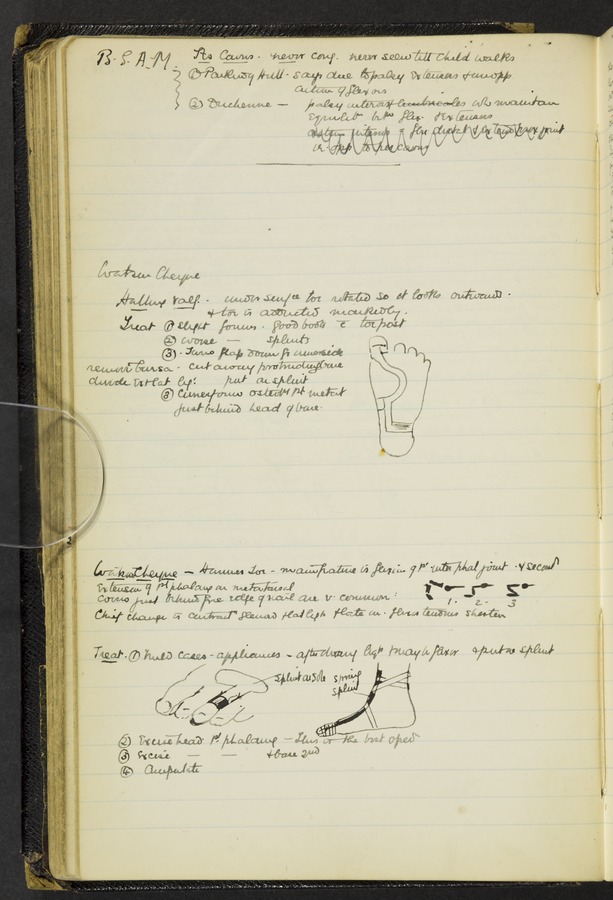 B. S. A. M. Pes Cavus. never cong. never seen till child walks
① Parkway Hill. says due to paley extensors & unopp
action of flexors
② Duchenne — paley interos & lumbricales who maintain
equilib btw flex. & extensors
Watson Cheyne
Hallux valg. under surface toe rotated so it looks outward.
& toe is adducted markedly.
Treat ① slight forms. good boots c toe post
② worse — splints
③. Turn flap down fr inner side
remove bursa. cut away protruding bone
divide ext lat lig: put on splint
③ Cuneiform osteoty 1st metat
just behind head of bone.
Watson Cheyne — Hammer Toe - main feature is flexion of 1st interphal joint. & second
Extension of 1st phalanx on metatarsal
corns just behind fore edge of nail are v. common:
1. 2. 3
Chief change is contract plantar & lat ligts & late on. flexor tendons shorten
Treat. ① mild cases - appliances - after dividing ligts & maybe flexor & put on splint
splint at side strong
splint
② Excise head 1st phalanx — This is the best opn
③ Excise — — & base 2nd
④ Amputate